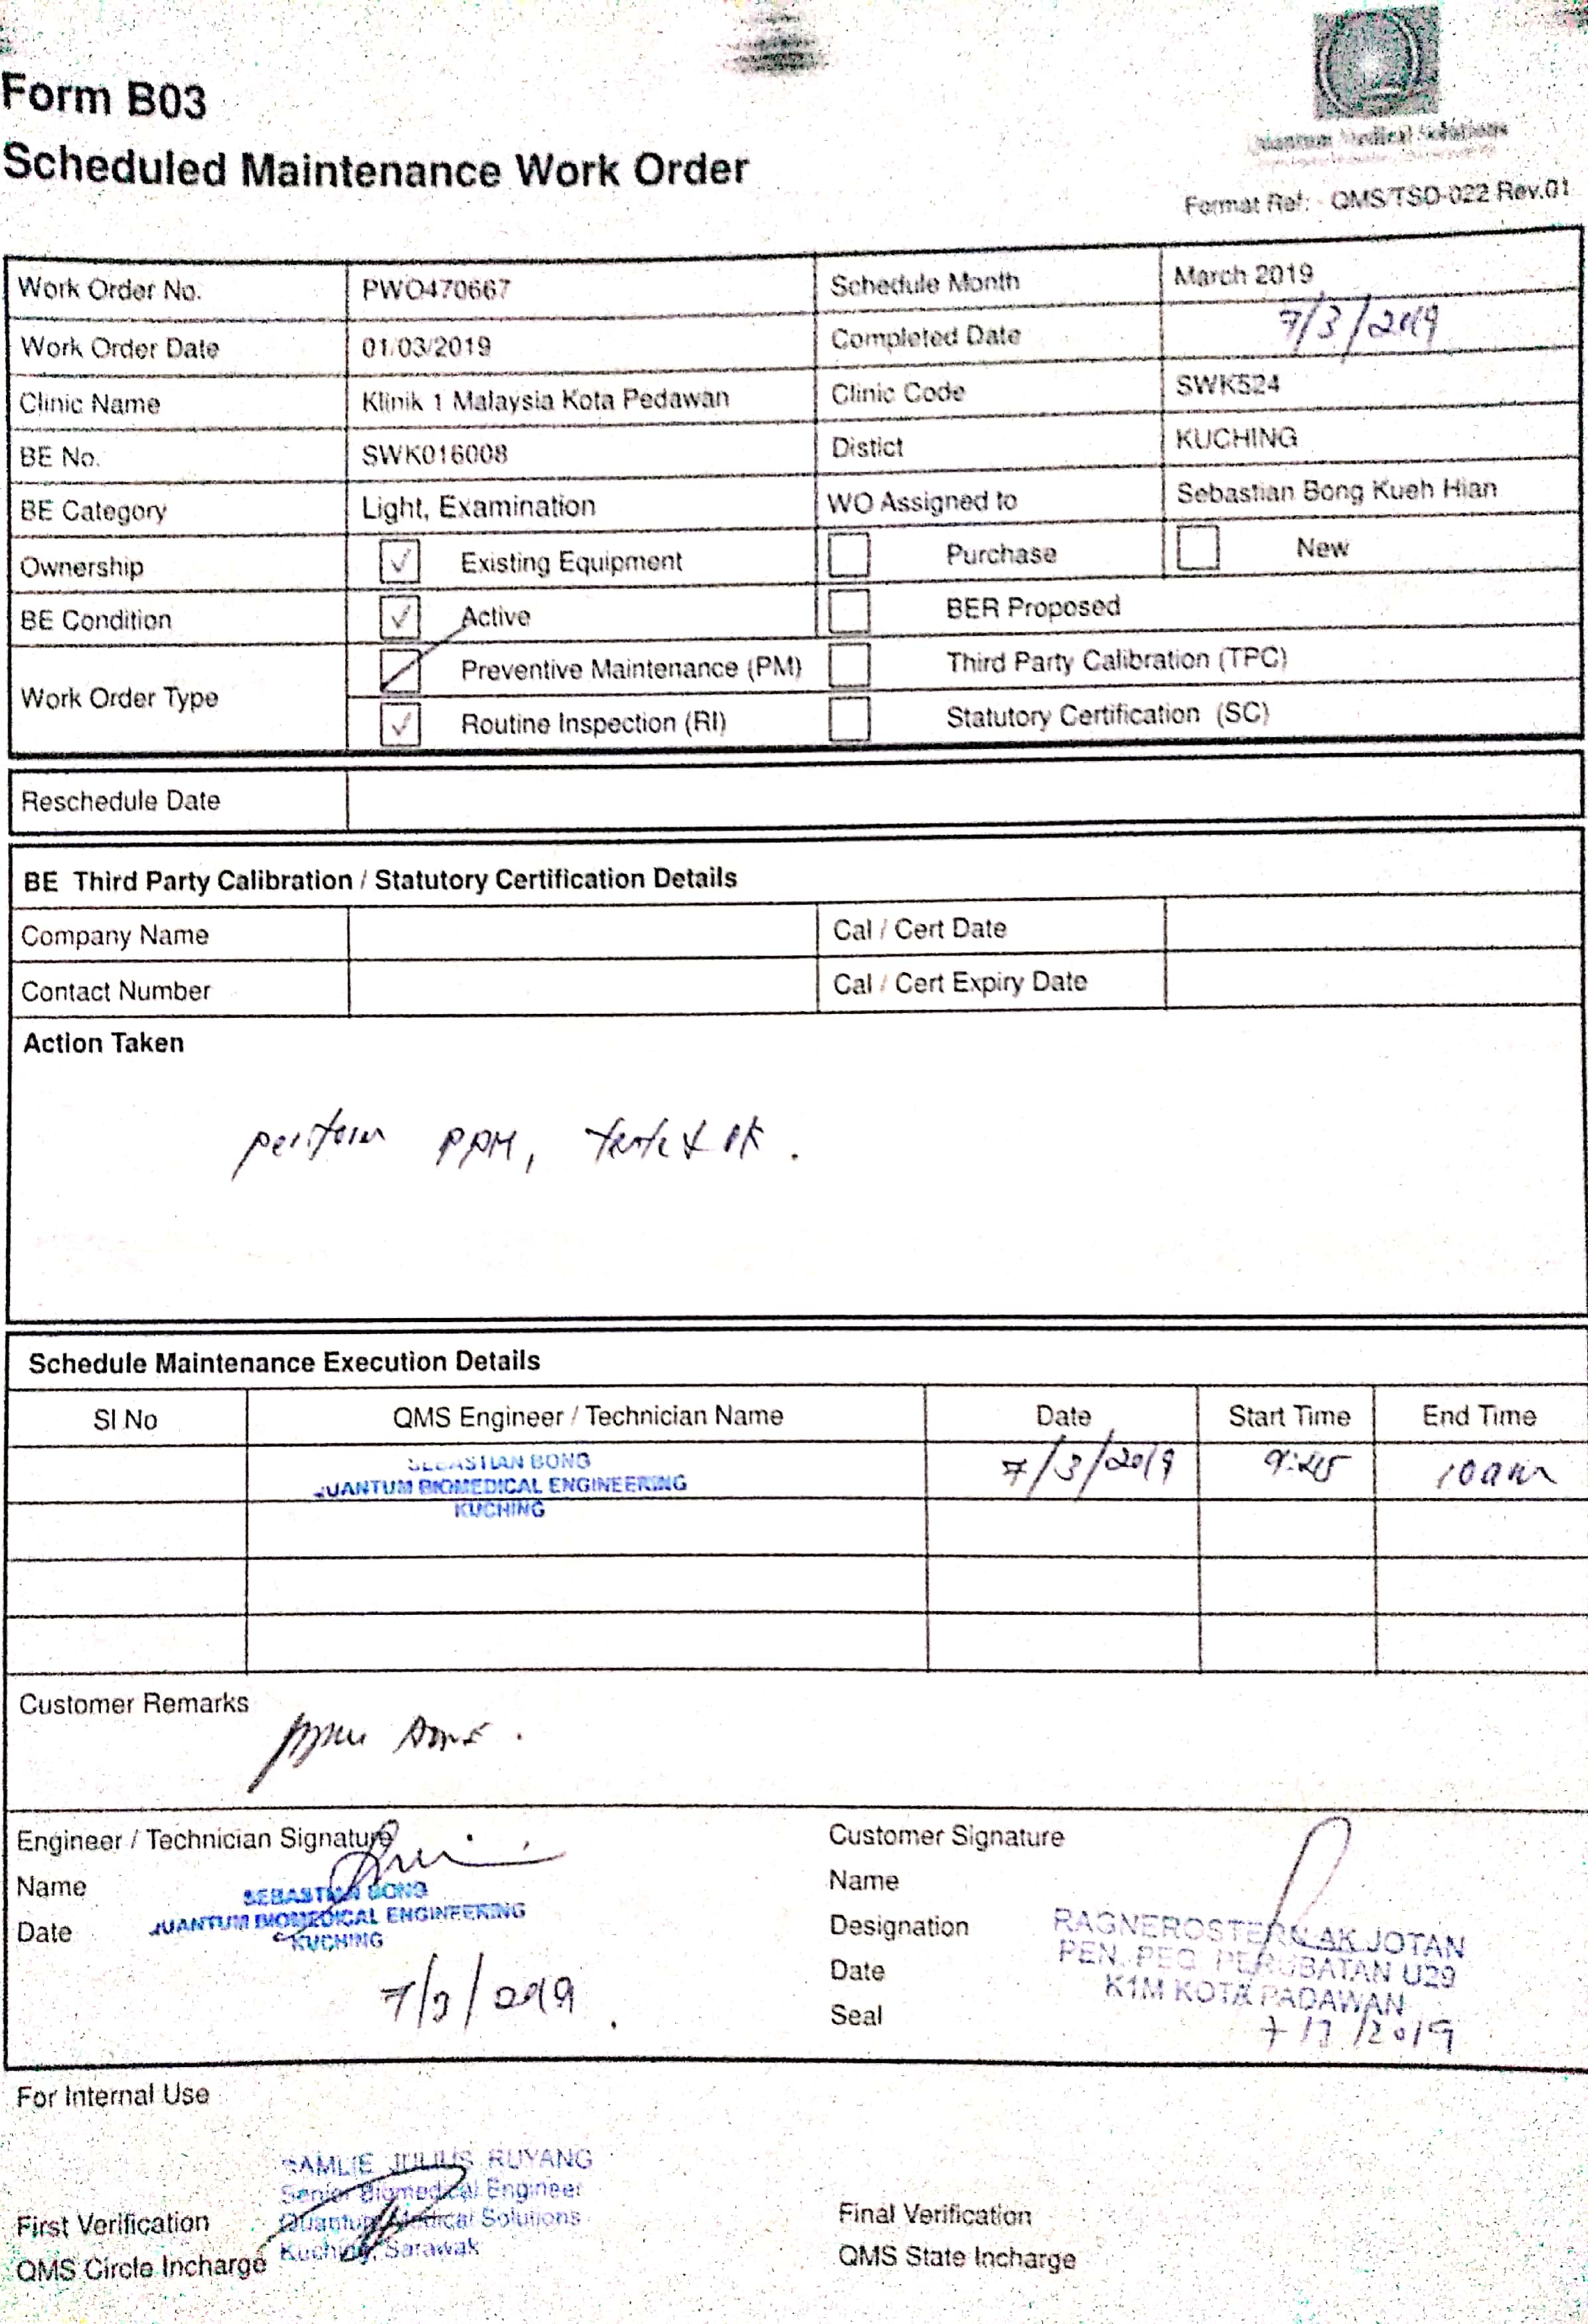 Form B03
Scheduled Maintenance Work Order
Quantum Medical Solutions
Format Ref: QMS/TSD-022 Rev.01
Work Order No. PWO470667 Schedule Month March 2019
Work Order Date 01/03/2019 Completed Date 7/3/2019
Clinic Name Klinik 1 Malaysia Kota Pedawan Clinic Code SWK524
BE No. SWK016008 Distict KUCHING
BE Category Light, Examination WO Assigned to Sebastian Bong Kueh Hian
Ownership ✓ Existing Equipment Purchase New
BE Condition ✓ Active BER Proposed
Work Order Type
Preventive Maintenance (PM) Third Party Calibration (TPC)
✓ Routine Inspection (RI) Statutory Certification (SC)
Reschedule Date
BE Third Party Calibration / Statutory Certification Details
Company Name Cal / Cert Date
Contact Number Cal / Cert Expiry Date
Action Taken
perform PPM, tested ok.
Schedule Maintenance Execution Details
SI No QMS Engineer / Technician Name Date Start Time End Time
SEBASTIAN BONG 7/3/2019 9:45 10am
QUANTUM BIOMEDICAL ENGINEERING
KUCHING
Customer Remarks
PPM DONE.
Engineer / Technician Signature Customer Signature
Name SEBASTIAN BONG Name
Date QUANTUM BIOMEDICAL ENGINEERING Designation RAGNEROSTERN AK JOTAN
KUCHING PEN. PEG. PERUBATAN U29
Date K1M KOTA PADAWAN
7/3/2019 Seal 7/3/2019
For Internal Use
SAMLIE JULIUS RUYANG
Senior Biomedical Engineer
First Verification Quantum Medical Solutions Final Verification
QMS Circle Incharge Kuching, Sarawak QMS State Incharge